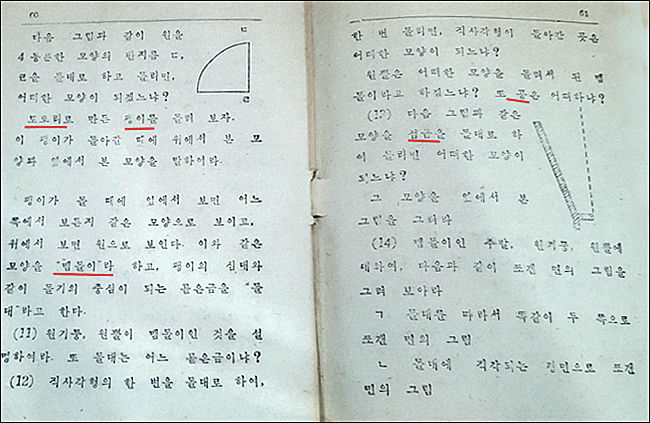 60
다음 그림과 같이 원을
4 등분한 모양의 반지름 ㄷ,
ㄹ을 돌대로 하고 돌리면,
어떠한 모양이 되겠느냐?
ㄷ
ㄹ
도토리로 만든 팽이를 돌려 보자.
이 팽이가 돌아갈 때에 위에서 본 모
양과 옆에서 본 모양을 말하여라.
팽이가 돌 때에 옆에서 보면 어느
쪽에서 보든지 같은 모양으로 보이고,
위에서 보면 원으로 보인다. 이와 같은
모양을 "맴돌이"라 하고, 팽이의 심대와
같이 돌기의 중심이 되는 곧은금을 "돌
대"라고 한다.
(11) 원기둥, 원뿔이 맴돌이인 것을 설
명하여라. 또 돌대는 어느 곧은금이냐?
(12) 직사각형의 한 변을 돌대로 하여,
61
한 번 돌리면, 직사각형이 돌아간 곳은
어떠한 모양이 되느냐?
원뿔은 어떠한 모양을 돌려서 된 맴
돌이라고 하겠느냐? 또 공은 어떠하냐?
(13) 다음 그림과 같은
모양을 점금을 돌대로 하
여 돌리면 어떠한 모양이
되느냐?
그 모양을 옆에서 본
그림을 그려라
(14) 맴돌이인 주발, 원기둥, 원뿔에
대하여, 다음과 같이 쪼갠 면의 그림을
그려 보아라
ㄱ 돌대를 따라서 똑같이 두 쪽으로
쪼갠 면의 그림
ㄴ 돌대에 직각되는 평면으로 쪼갠
면의 그림